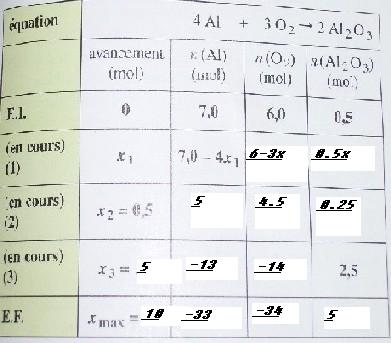 équation 4 Al + 3 O₂ → 2 Al₂O₃
avancement (mol) n (Al) (mol) n (O₂) (mol) n (Al₂O₃) (mol)
E.I. 0 7,0 6,0 0,5
(en cours) (1) x₁ 7,0 – 4x₁ 6-3x 0.5x
(en cours) (2) x₂ = 0,5 5 4.5 0.25
(en cours) (3) x₃ = 5 -13 -14 2,5
E.F. x max = 10 -33 -34 5